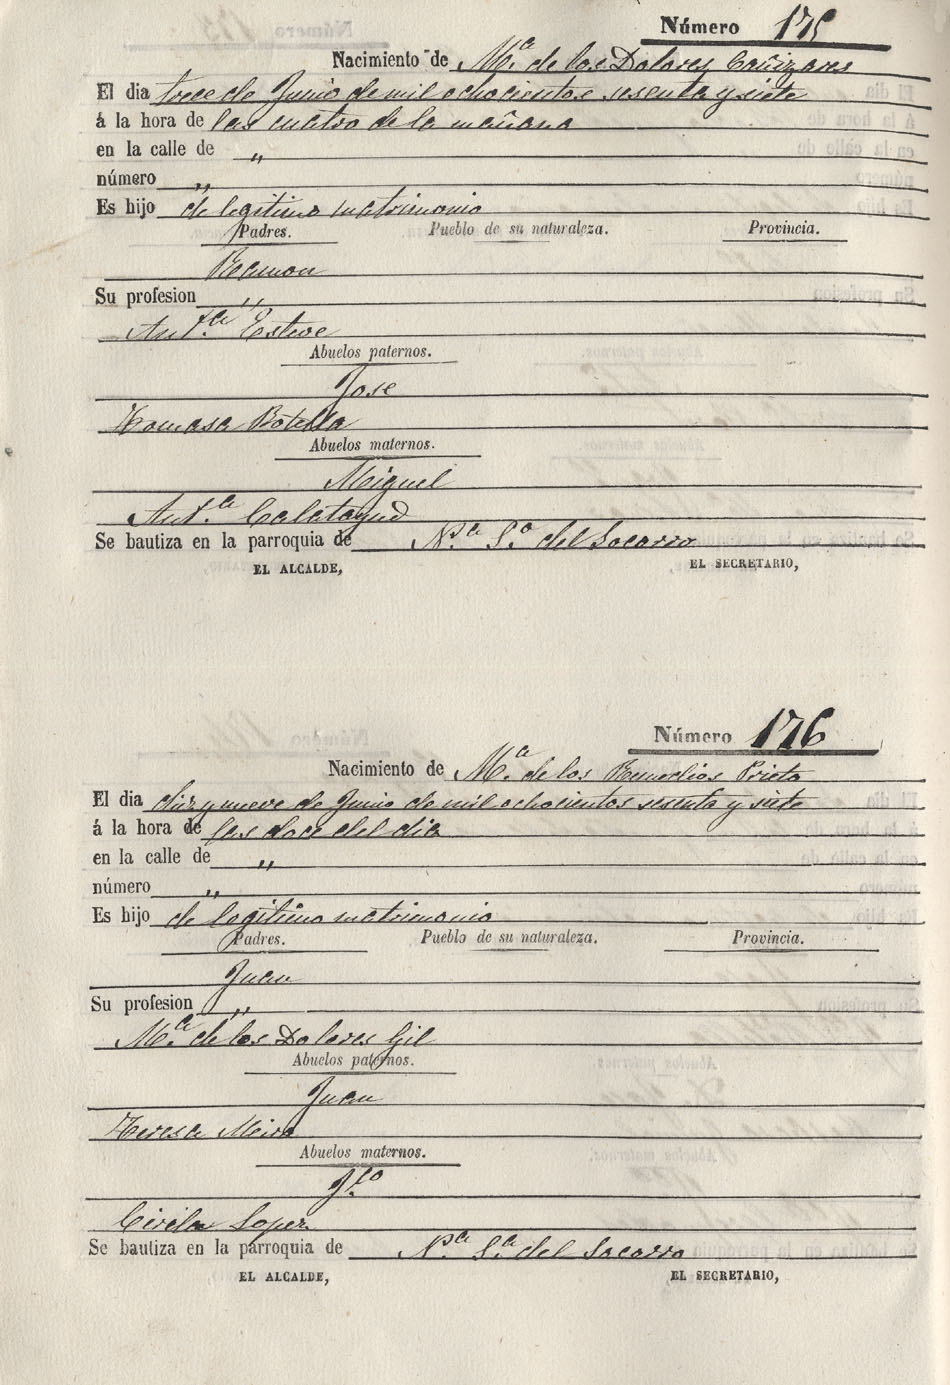 Número 175
Nacimiento de Mª de los Dolores Cañizares
El dia trece de Junio de mil ochocientos sesenta y siete
á la hora de las cuatro de la mañana
en la calle de "
número "
Es hijo de legitimo matrimonio
Padres. Pueblo de su naturaleza. Provincia.
Ramon
Su profesion "
Antª Esteve
Abuelos paternos.
Jose
Tomasa Botella
Abuelos maternos.
Miguel
Antª Calatayud
Se bautiza en la parroquia de Nª Sª del Socorro
EL ALCALDE, EL SECRETARIO,
Número 176
Nacimiento de Mª de los Remedios Prieto
El dia diez y nueve de Junio de mil ochocientos sesenta y siete
á la hora de las doce del dia
en la calle de "
número "
Es hijo de legitimo matrimonio
Padres. Pueblo de su naturaleza. Provincia.
Juan
Su profesion "
Mª de los Dolores Gil
Abuelos paternos.
Juan
Teresa Mira
Abuelos maternos.
Cirila Soper
Se bautiza en la parroquia de Nª Sª del Socorro
EL ALCALDE, EL SECRETARIO,